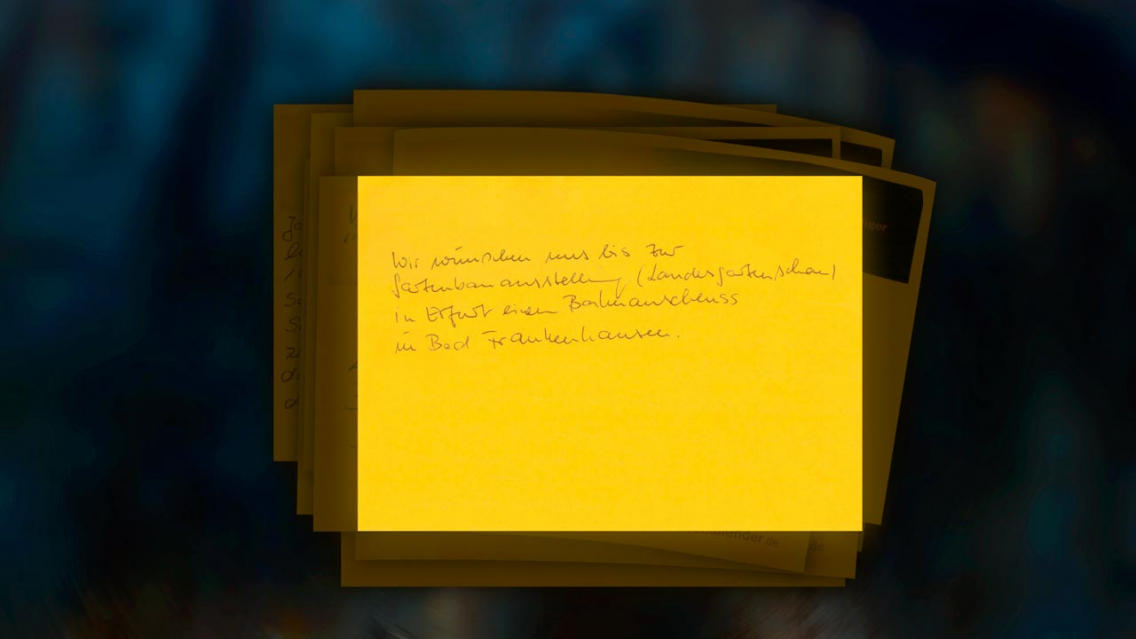 Wir wünschen uns bis zur
Gartenbauausstellung (Landesgartenschau)
in Erfurt einen Bahnanschluss
in Bad Frankenhausen.